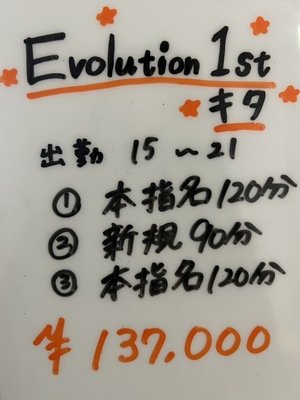 Evolution 1st
キタ
出勤 15〜21
① 本指名120分
② 新規90分
③ 本指名120分
¥137,000